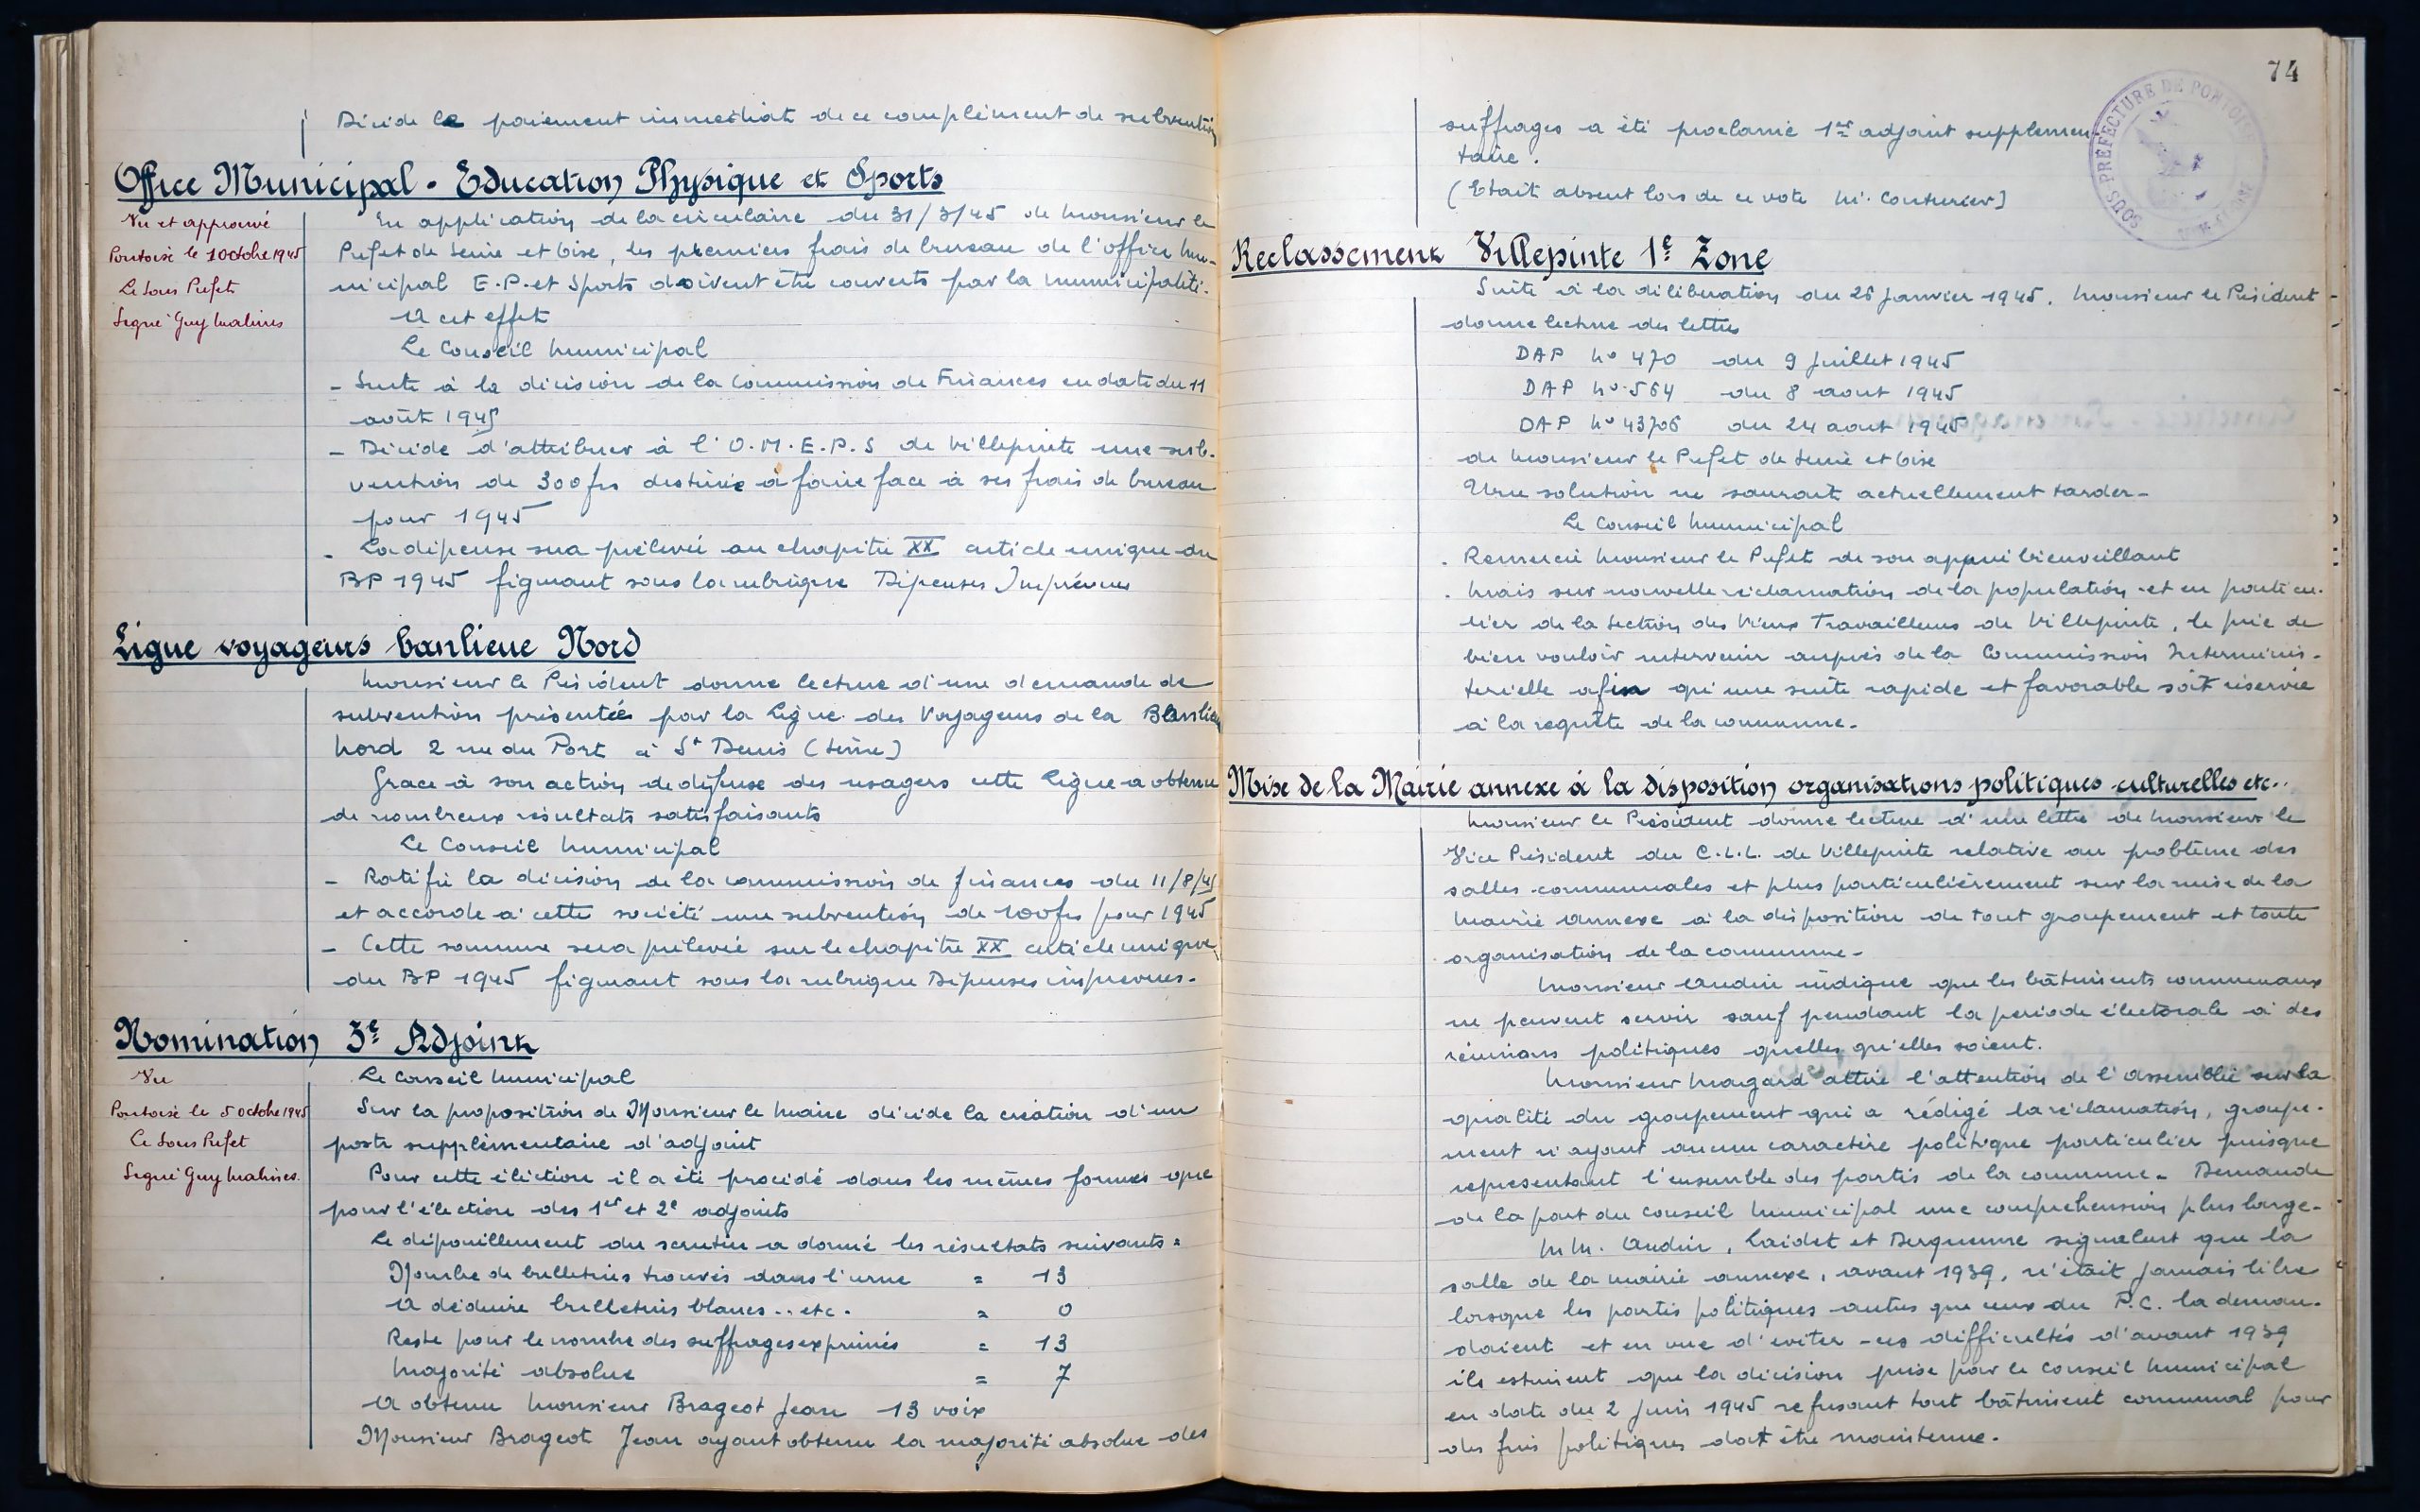 Décide le paiement immédiat de ce complément de subvention
Office Municipal - Education Physique et Sports
Vu et approuvé
Pontoise le 1 Octobre 1945
Le Sous Prefet
Signé Guy Malines
En application de la circulaire du 31/3/45 de Monsieur le
Prefet de Seine et Oise, les premiers frais de bureau de l'office Mu-
nicipal E.P. et Sports doivent être couverts par la municipalité.
A cet effet
Le Conseil Municipal
- Suite à la décision de la Commission de Finances en date du 11
août 1945
- Décide d'attribuer à l'O.M.E.P.S de Villepinte une sub-
vention de 300 frs destinée à faire face à ses frais de bureau
pour 1945
- La dépense sera prélevée au chapitre XX article unique du
BP 1945 figurant sous la rubrique Dépenses Imprévues
Ligue voyageurs banlieue Nord
Monsieur le Président donne lecture d'une demande de
subvention présentée par la Ligue des Voyageurs de la Banlieue
Nord 2 rue du Port à St Denis (Seine)
Grace à son action de défense des usagers cette Ligue a obtenu
de nombreux résultats satisfaisants
Le Conseil Municipal
- Ratifie la décision de la commission de finances du 11/8/45
et accorde à cette société une subvention de 100 frs pour 1945
- Cette somme sera prélevée sur le chapitre XX article unique
du BP 1945 figurant sous la rubrique Dépenses imprévues.
Nomination 3e Adjoint
Vu
Pontoise le 5 octobre 1945
Le Sous Prefet
Signé Guy Malines.
Le Conseil Municipal
Sur la proposition de Monsieur le Maire décide la création d'un
poste supplémentaire d'adjoint
Pour cette élection il a été procédé dans les mêmes formes que
pour l'élection des 1er et 2e adjoints
Le dépouillement du scrutin a donné les résultats suivants =
Nombre de bulletins trouvés dans l'urne = 13
A déduire bulletins blancs .. etc. = 0
Reste pour le nombre des suffrages exprimés = 13
Majorité absolue = 7
A obtenu Monsieur Brageot Jean 13 voix
Monsieur Brageot Jean ayant obtenu la majorité absolue des
74
SOUS PRÉFECTURE DE PONTOISE
suffrages a été proclamé 1er adjoint supplémen
taire.
(Etait absent lors de ce vote M. Couturier)
Reclassement Villepinte 1e Zone
Suite à la délibération du 26 Janvier 1945. Monsieur le Président
donne lecture des lettres
DAP No 470 du 9 Juillet 1945
DAP No 564 du 8 aout 1945
DAP No 43706 du 24 aout 1945
de Monsieur le Prefet de Seine et Oise
Une solution ne saurait actuellement tarder-
Le Conseil Municipal
. Remercie Monsieur le Prefet de son appui bienveillant
. Mais sur nouvelle réclamation de la population et en particu-
lier de la Section des Vieux Travailleurs de Villepinte, le prie de
bien vouloir intervenir auprès de la Commission Interminis-
terielle afin qu'une suite rapide et favorable soit réservée
à la requête de la commune.
Mise de la Mairie annexe à la disposition organisations politiques culturelles etc..
Monsieur le Président donne lecture d'une lettre de Monsieur le
Vice Président du C.L.L. de Villepinte relative au problème des
salles communales et plus particulièrement sur la mise de la
Mairie annexe à la disposition de tout groupement et toute
organisation de la commune-
Monsieur Audin indique que les bâtiments communaux
ne peuvent servir sauf pendant la période électorale à des
réunions politiques quelles qu'elles soient.
Monsieur Magard attire l'attention de l'assemblée sur la
qualité du groupement qui a rédigé la réclamation, groupe-
ment n'ayant aucun caractère politique particulier puisque
représentant l'ensemble des partis de la commune. Demande
de la part du Conseil Municipal une compréhension plus large-
M.M. Audin, Laidet et Derquenne signalent que la
salle de la mairie annexe, avant 1939, n'était jamais libre
lorsque les partis politiques autres que ceux du P.C. la deman-
daient et en vue d'éviter ces difficultés d'avant 1939
ils estiment que la décision prise par le Conseil Municipal
en date du 2 Juin 1945 refusant tout bâtiment communal pour
des fins politiques doit être maintenue.